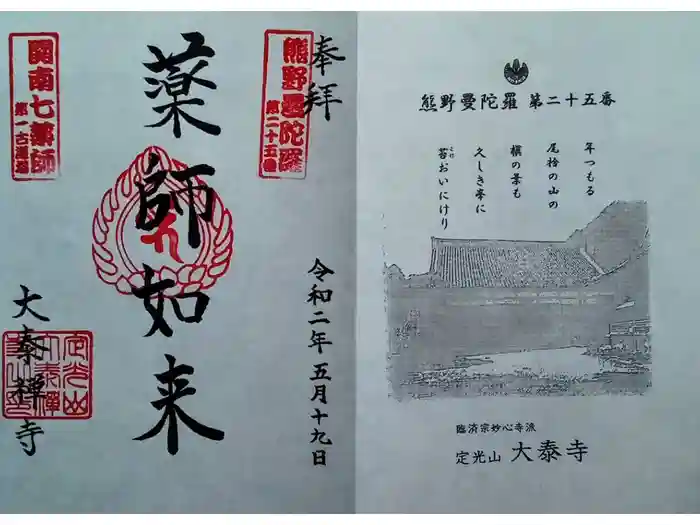 奉拝
熊野曼陀羅
第二十五番
薬師如来
令和二年五月十九日
関南七薬師
大泰禅寺
熊野曼陀羅 第二十五番
年つもる
尾捨の山の
槇の葉も
久しき亭に
苔おいにけり
こけ
臨済宗妙心寺派
定光山 大泰寺